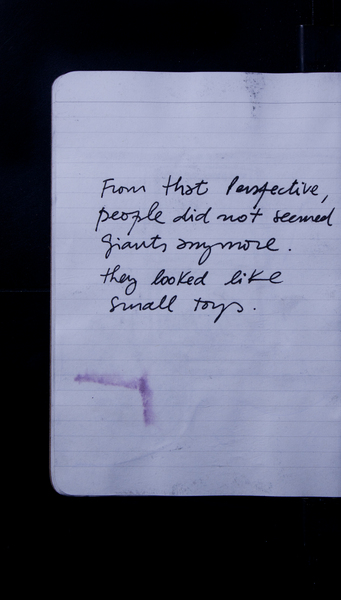 From that Perspective,
people did not seemed
giants anymore.
they looked like
small toys.